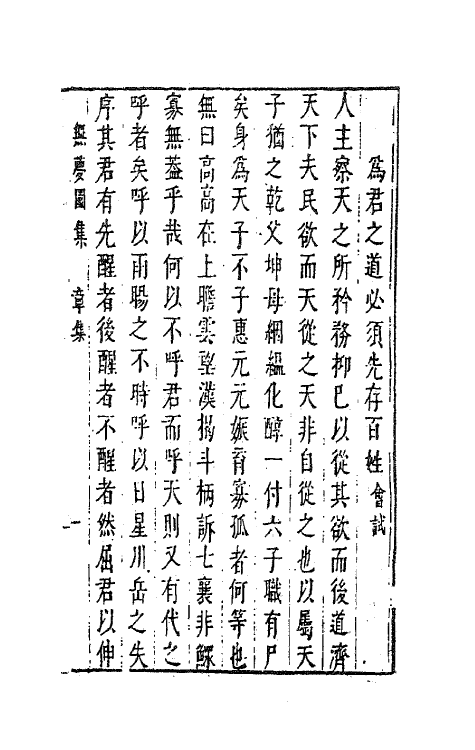 爲君之道必須先存百姓 會試
人主察天之所矜務抑已以從其欲而後道濟
天下夫民欲而天從之天非自從之也以屬天
子猶之乾父坤母絪縕化醇一付六子職有尸
矣身爲天子不子惠元元娠育寡孤者何等也
無曰高高在上瞻雲望漢揭斗柄訴七襄非鰥
寡無葢乎哉何以不呼君而呼天則又有代之
呼者矣呼以雨暘之不時呼以日星川岳之失
序其君有先醒者後醒者不醒者然屈君以伸
無夢園集 章集 一